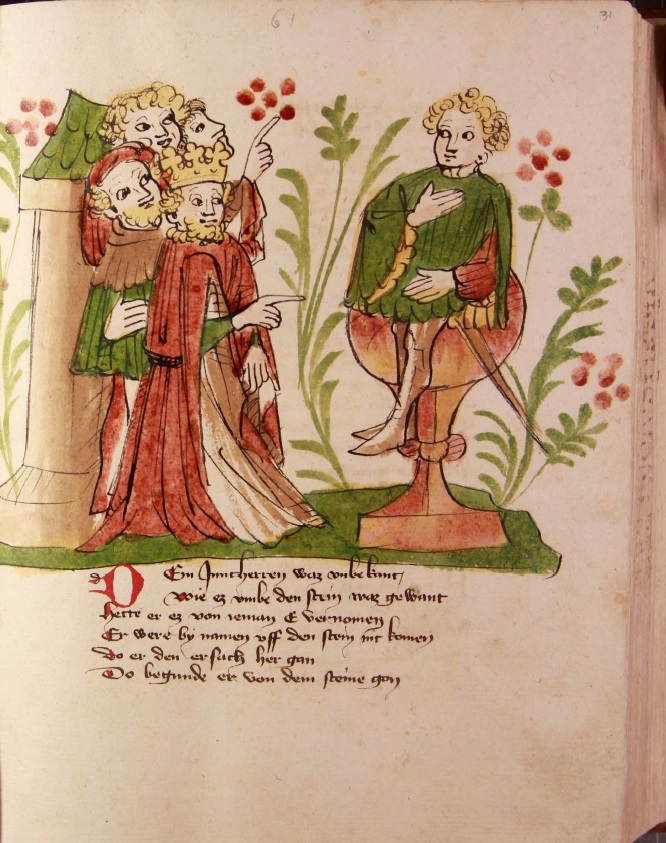 61
31
Dem Juncherren waz vnbekant
wie ez vmbe den stein waz gewant
hette er ez von ieman E vernomen
Er were by namen vff den stein nit komen
do er den ersach her gan
Do begunde er von dem steine gon